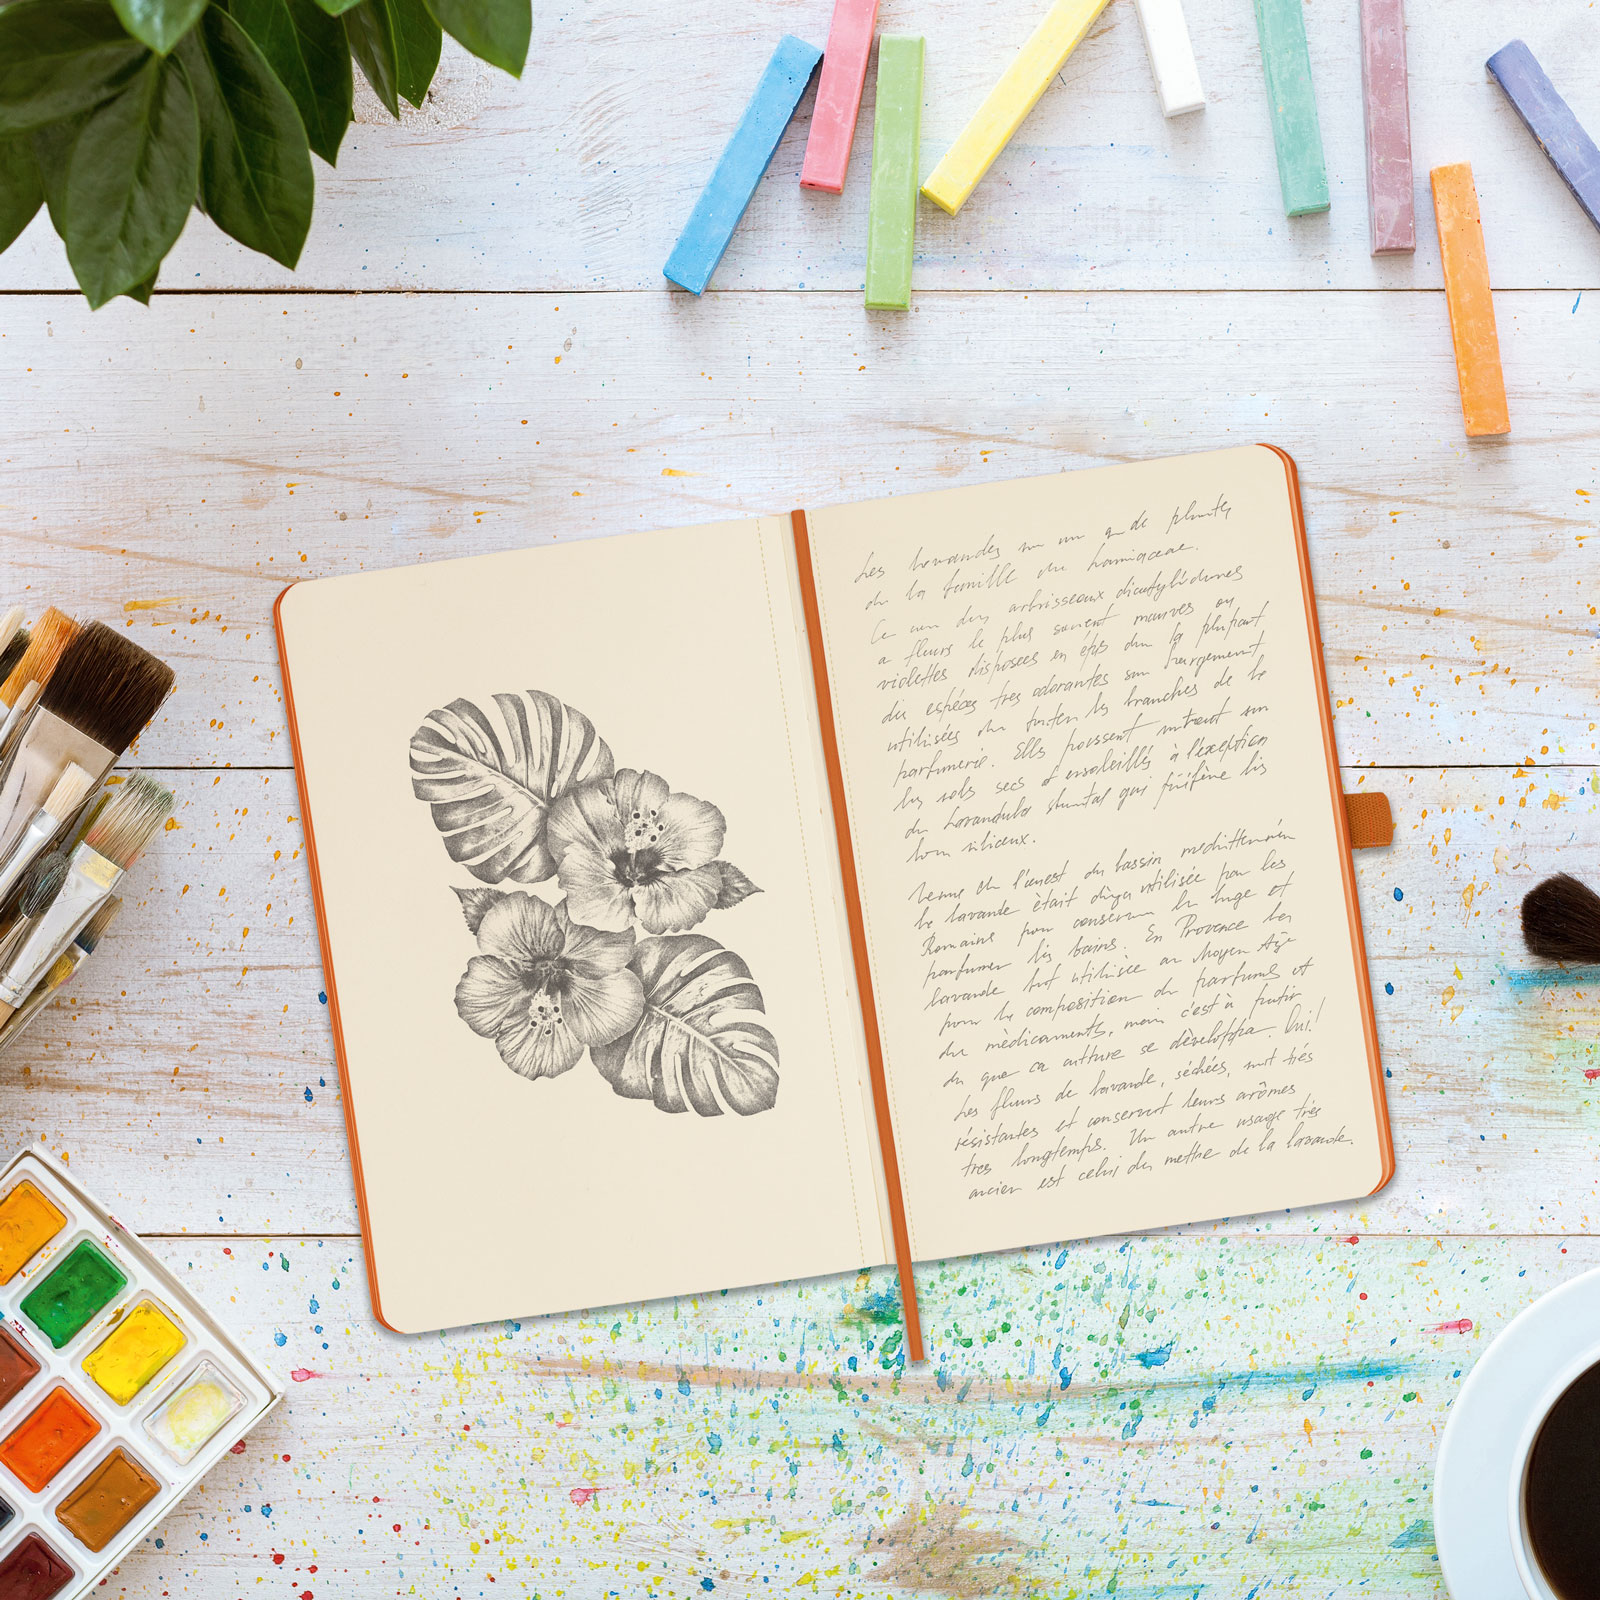 Les lavandes un de plantes
de la famille du Lamiaceae.
Ce arbrisseaux dicotylédones
a fleurs le plus souvent mauves ou
violettes disposees en épis la plupart
espéces tres odorantes largement
utilisées les branches de la
parfumerie. Elles poussent surtout sur
les sols secs et ensoleillés à l'exception
du Lavandula qui préfère les
silicieux.
l'ouest du bassin mediterranéen
la lavande était utilisée par les
Romains pour conserver le linge et
parfumer les bains. En Provence la
lavande fut utilisée au Moyen Age
pour la composition de parfums et
du mèdicaments, mais c'est à partir
du que ca culture se développa. Oui!
Les fleurs de lavande, séchées, sont trés
résistantes et conservent leurs arômes
tres longtemps. Un autre usage trés
ancien est celui du mettre de la lavande.